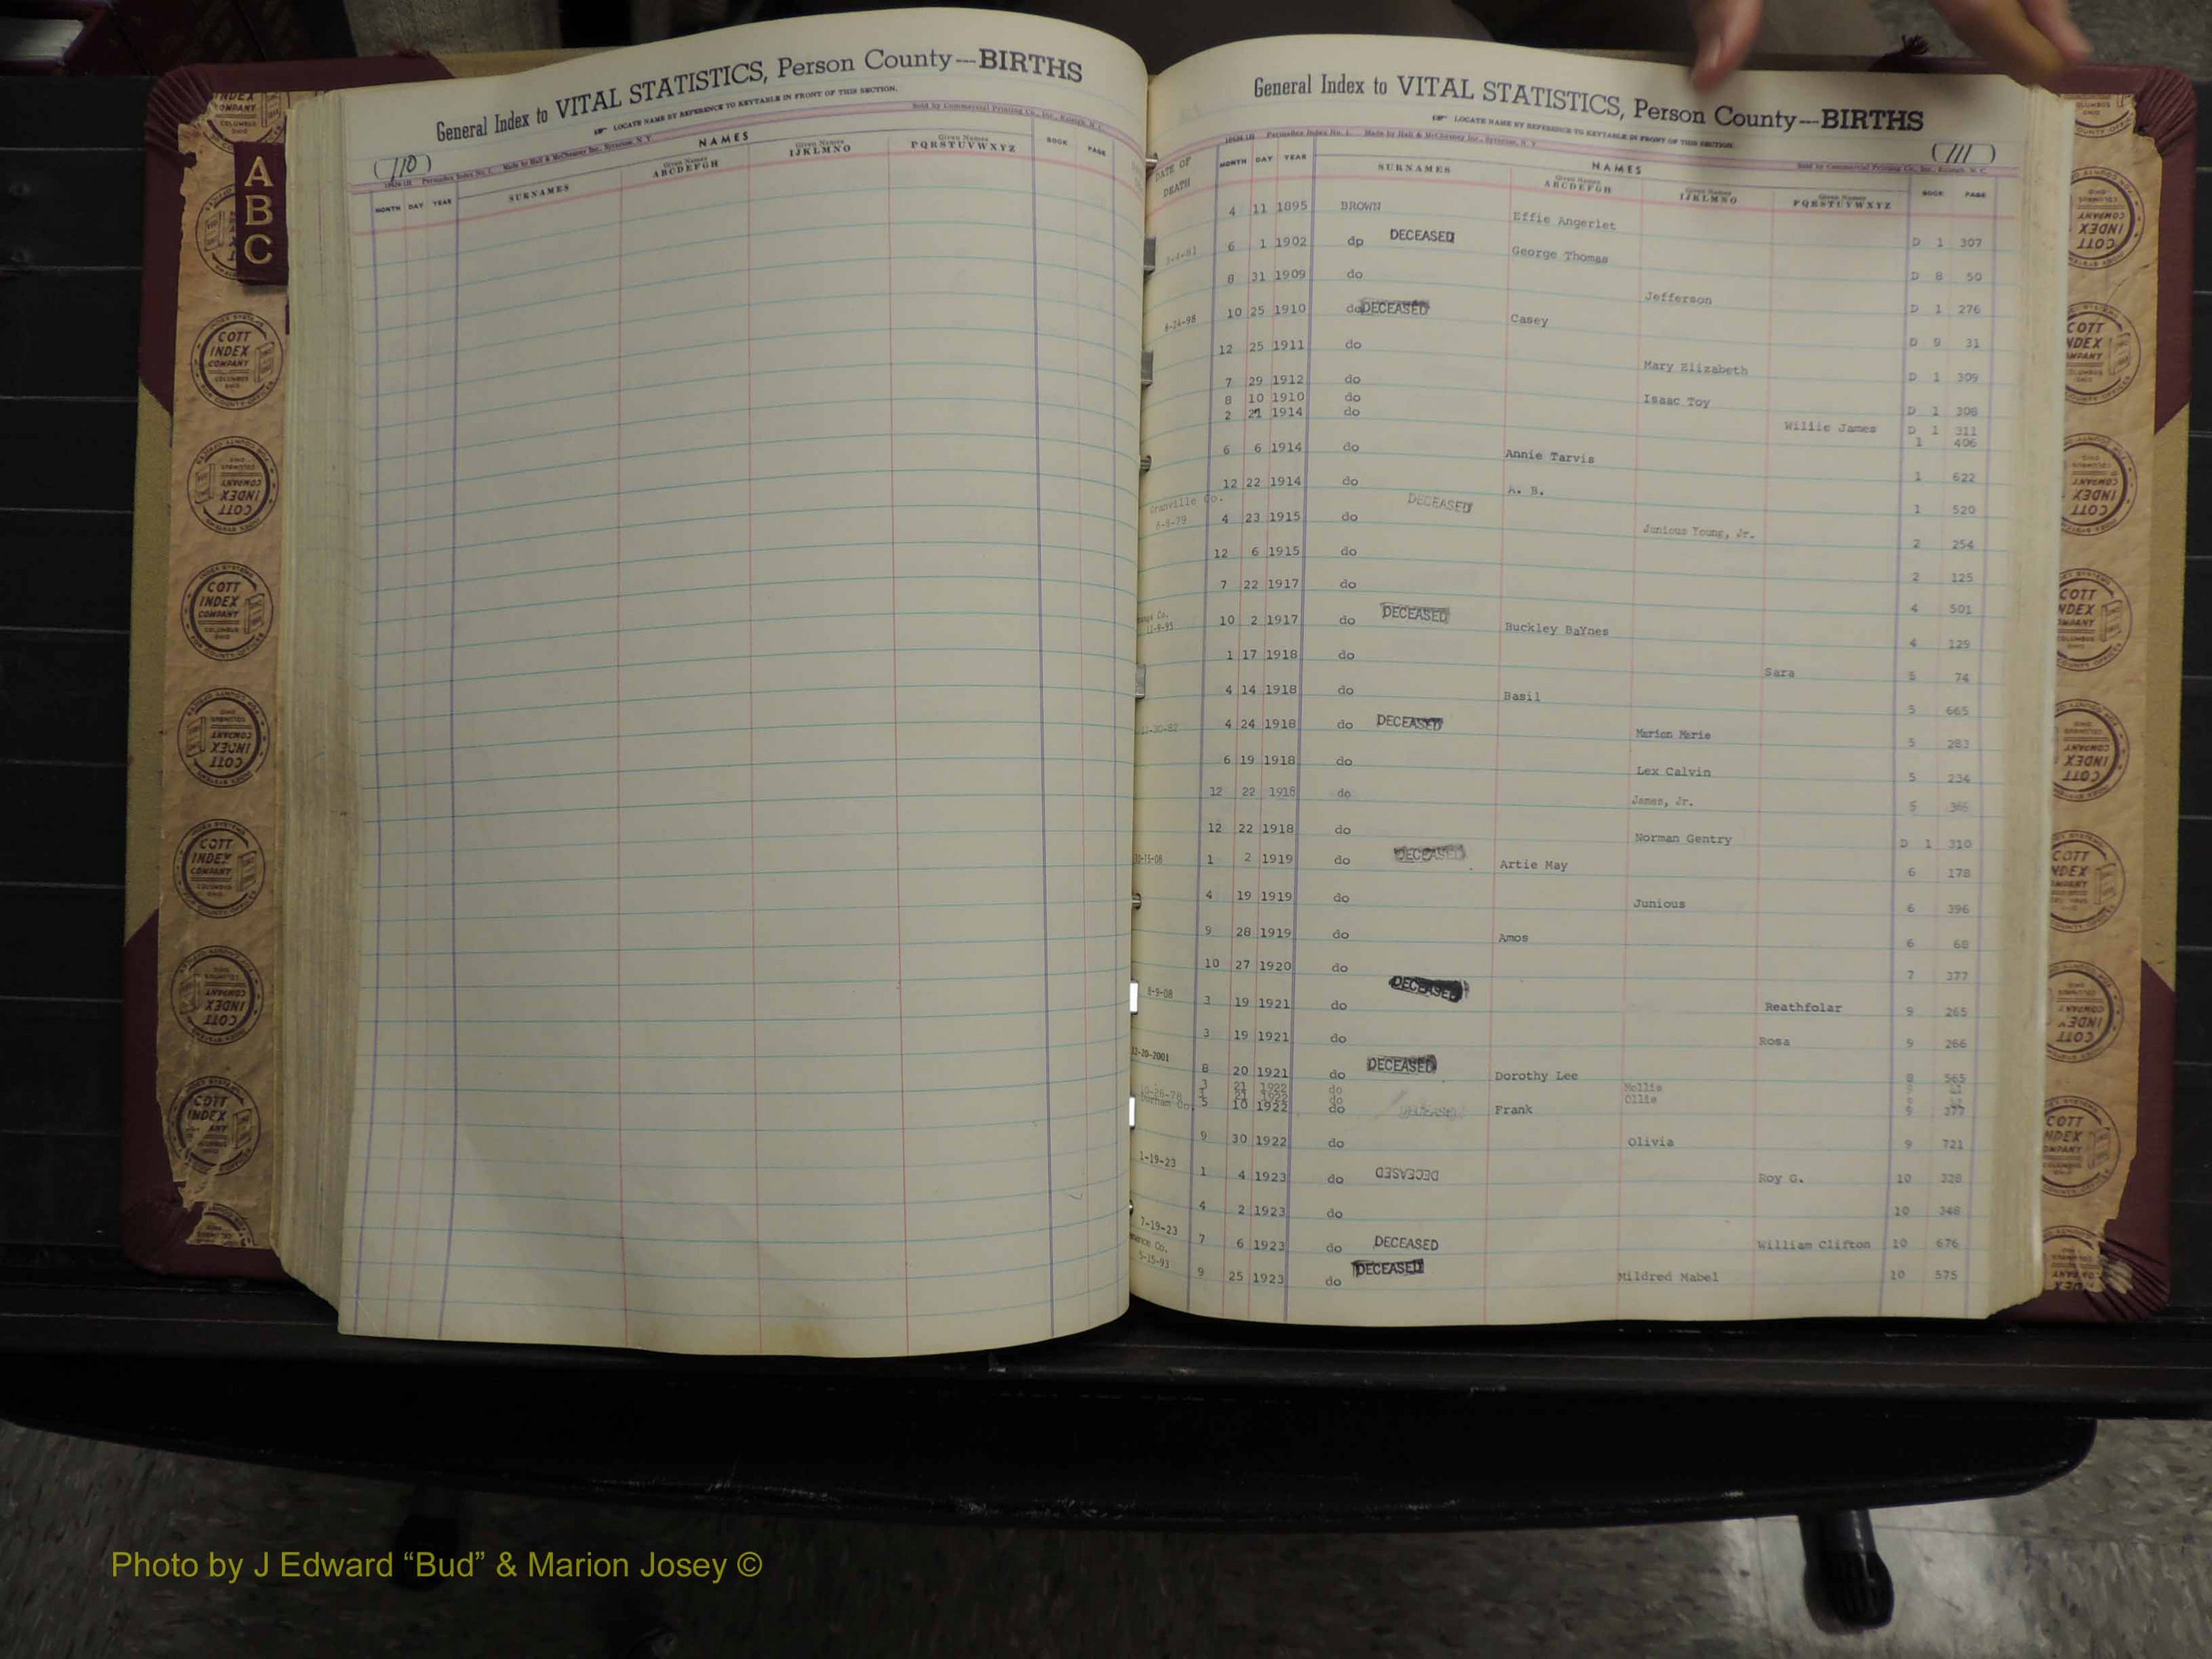 General Index to VITAL STATISTICS, Person County---BIRTHS
LOCATE NAME BY REFERENCE TO KEYTABLE IN FRONT OF THIS SECTION.
(110)
Made by Hall & McChesney Inc., Syracuse, N. Y.
Sold by Commercial Printing Co., Inc., Raleigh, N. C.
MONTH DAY YEAR SURNAMES NAMES Given Names ABCDEFGH Given Names IJKLMNO Given Names PQRSTUVWXYZ BOOK PAGE
A
B
C
General Index to VITAL STATISTICS, Person County---BIRTHS
LOCATE NAME BY REFERENCE TO KEYTABLE IN FRONT OF THIS SECTION.
(111)
Permadex Index No. 1. Made by Hall & McChesney Inc., Syracuse, N. Y.
Sold by Commercial Printing Co., Inc., Raleigh, N. C.
DATE OF DEATH MONTH DAY YEAR SURNAMES NAMES Given Names ABCDEFGH Given Names IJKLMNO Given Names PQRSTUVWXYZ BOOK PAGE
4 11 1895 BROWN Effie Angerlet D 1 307
6 1 1902 dp DECEASED George Thomas D 8 50
8 31 1909 do Jefferson D 1 276
6-24-98 10 25 1910 do DECEASED Casey D 9 31
12 25 1911 do Mary Elizabeth D 1 309
7 29 1912 do Isaac Toy D 1 308
8 10 1910 do Willie James D 1 311
2 21 1914 do 1 406
6 6 1914 do Annie Tarvis 1 622
12 22 1914 do A. B. 1 520
Granville Co. 6-8-79 4 23 1915 do DECEASED Junious Young, Jr. 2 254
12 6 1915 do 2 125
7 22 1917 do 4 501
11-9-95 10 2 1917 do DECEASED Buckley BaYnes 4 129
1 17 1918 do Sara 5 74
4 14 1918 do Basil 5 665
4 24 1918 do DECEASED Marion Marie 5 283
6 19 1918 do Lex Calvin 5 234
12 22 1918 do James, Jr. 5 366
12 22 1918 do Norman Gentry D 1 310
10-15-08 1 2 1919 do DECEASED Artie May 6 178
4 19 1919 do Junious 6 396
9 28 1919 do Amos 6 68
10 27 1920 do 7 377
8-9-08 3 19 1921 do DECEASED Reathfolar 9 265
3 19 1921 do Rosa 9 266
12-20-2001 8 20 1921 do DECEASED Dorothy Lee 8 565
3 21 1922 do Mollie
3 21 1922 do Ollie
10-26-78 Durham Co. 5 10 1922 do DECEASED Frank 9 377
9 30 1922 do Olivia 9 721
1-19-23 1 4 1923 do DECEASED Roy G. 10 328
4 2 1923 do 10 348
7-19-23 7 6 1923 do DECEASED William Clifton 10 676
5-15-93 9 25 1923 do DECEASED Mildred Mabel 10 575
COTT INDEX COMPANY COLUMBUS OHIO
Photo by J Edward “Bud” & Marion Josey ©